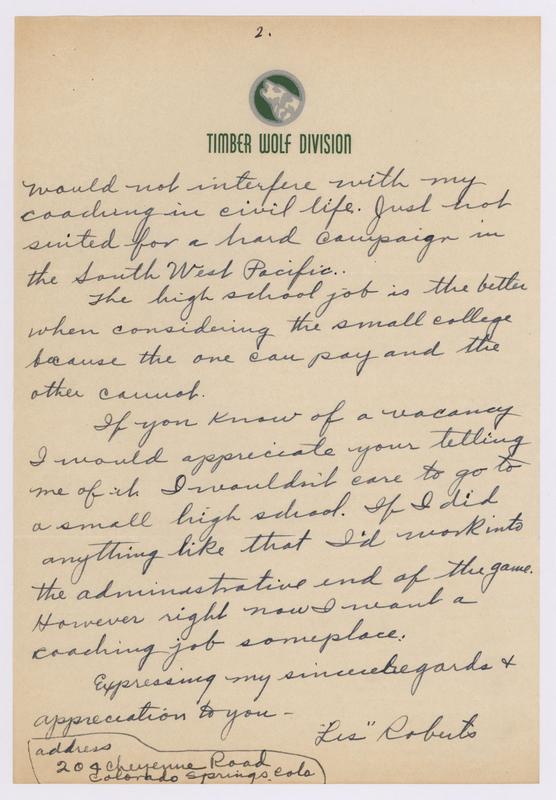 2.
TIMBER WOLF DIVISION
would not interfere with my
coaching in civil life. Just not
suited for a hard campaign in
the South West Pacific..
The high school job is the better
when considering the small college
because the one can pay and the
other cannot.
If you know of a vacancy
I would appreciate your telling
me of it. I wouldn't care to go to
a small high school. If I did
anything like that I'd work into
the administrative end of the game.
However right now I want a
coaching job someplace.
Expressing my sincere regards &
appreciation to you -
"Les" Roberts
address
204 Cheyenne Road
Colorado Springs, Colo